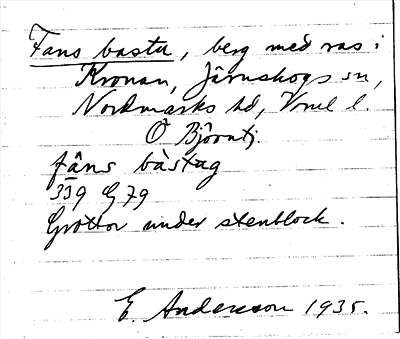 Fans bastu, berg med ras i
Kronan, Järnskogs sn,
Nordmarks hd, Vrml l.
Ö Björntj.
fàns bàstag
339 G 79
Grottor under stenblock.
E. Andersson 1935.